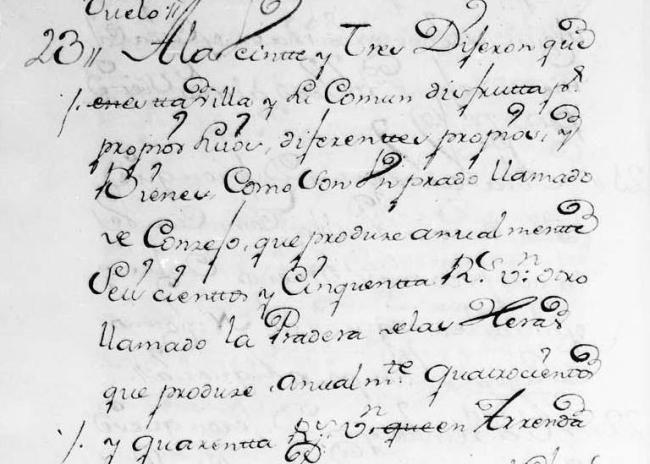 Suelo //
23 // A la veintte y Tres Dijeron que
/. ene estta Villa y su Comun disfrutta pr
propios suios, diferenttes propios, y
Vienes, Como Son Un prado llamado
de Conzejo, que produze anualmentte
Seis cienttos y Cinquentta Rs. Vn. otro
llamado la Pradera de las Heras
que produze, anualmte quatrocientos
/. y quarentta Rs. Vn. que en Arrenda